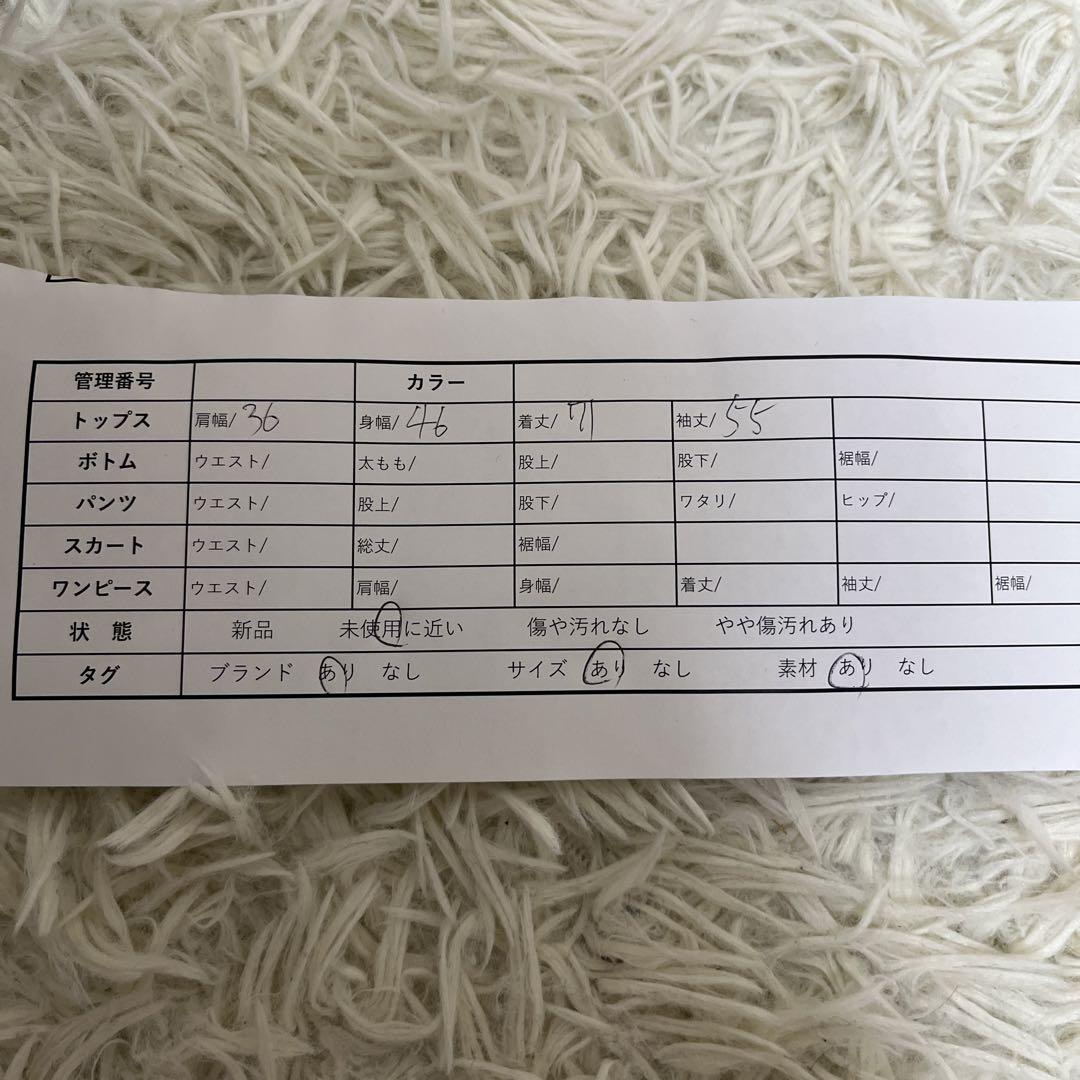 管理番号 カラー
トップス 肩幅/36 身幅/46 着丈/71 袖丈/55
ボトム ウエスト/ 太もも/ 股上/ 股下/ 裾幅/
パンツ ウエスト/ 股上/ 股下/ ワタリ/ ヒップ/
スカート ウエスト/ 総丈/ 裾幅/
ワンピース ウエスト/ 肩幅/ 身幅/ 着丈/ 袖丈/ 裾幅/
状 態 新品 未使用に近い 傷や汚れなし やや傷汚れあり
タグ ブランド あり なし サイズ あり なし 素材 あり なし